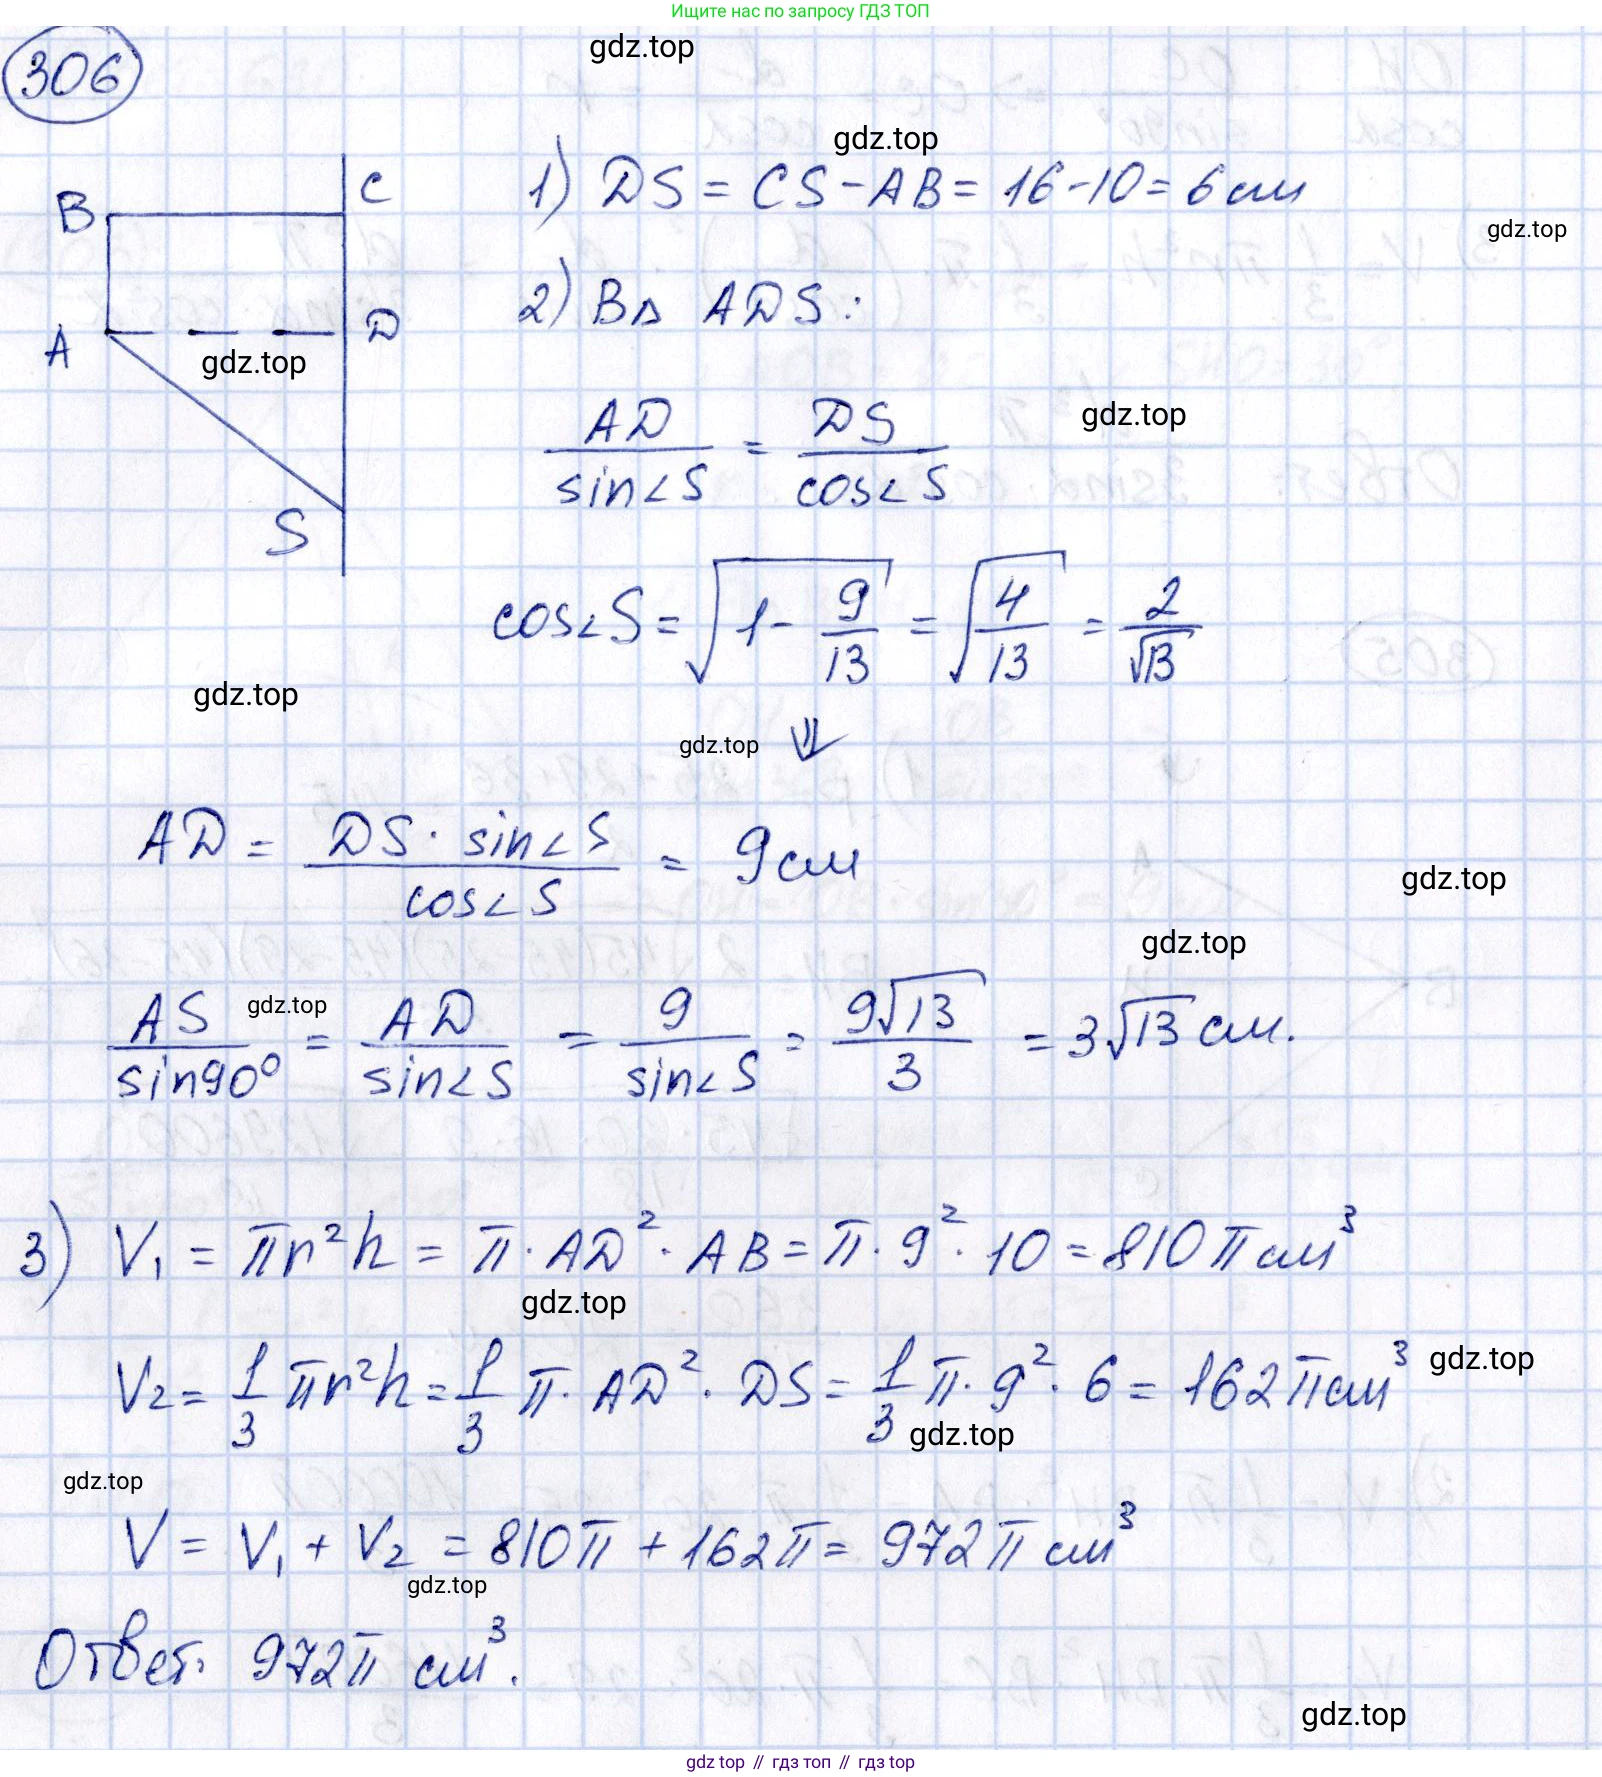 Ищите нас по запросу ГДЗ ТОП
306
gdz.top
gdz.top
B
C
1) DS = CS - AB = 16 - 10 = 6 см
gdz.top
2) В Δ ADS:
A
D
gdz.top
AD / sin∠S = DS / cos∠S
gdz.top
S
cos∠S = √(1 - 9/13) = √(4/13) = 2/√13
gdz.top
gdz.top ⇓
AD = DS · sin∠S / cos∠S = 9 см
gdz.top
gdz.top
AS / sin90° = AD / sin∠S = 9 / sin∠S = 9√13 / 3 = 3√13 см.
gdz.top
3) V₁ = πr²h = π · AD² · AB = π · 9² · 10 = 810 π см³
gdz.top
V₂ = 1/3 πr²h = 1/3 π · AD² · DS = 1/3 π · 9² · 6 = 162 π см³
gdz.top
gdz.top
gdz.top
V = V₁ + V₂ = 810π + 162π = 972 π см³
gdz.top
Ответ: 972π см³.
gdz.top
gdz top // гдз топ // gdz top